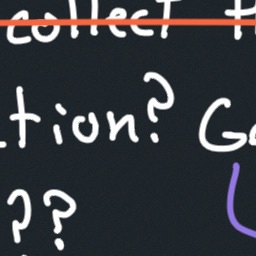 collect
tion? G
??